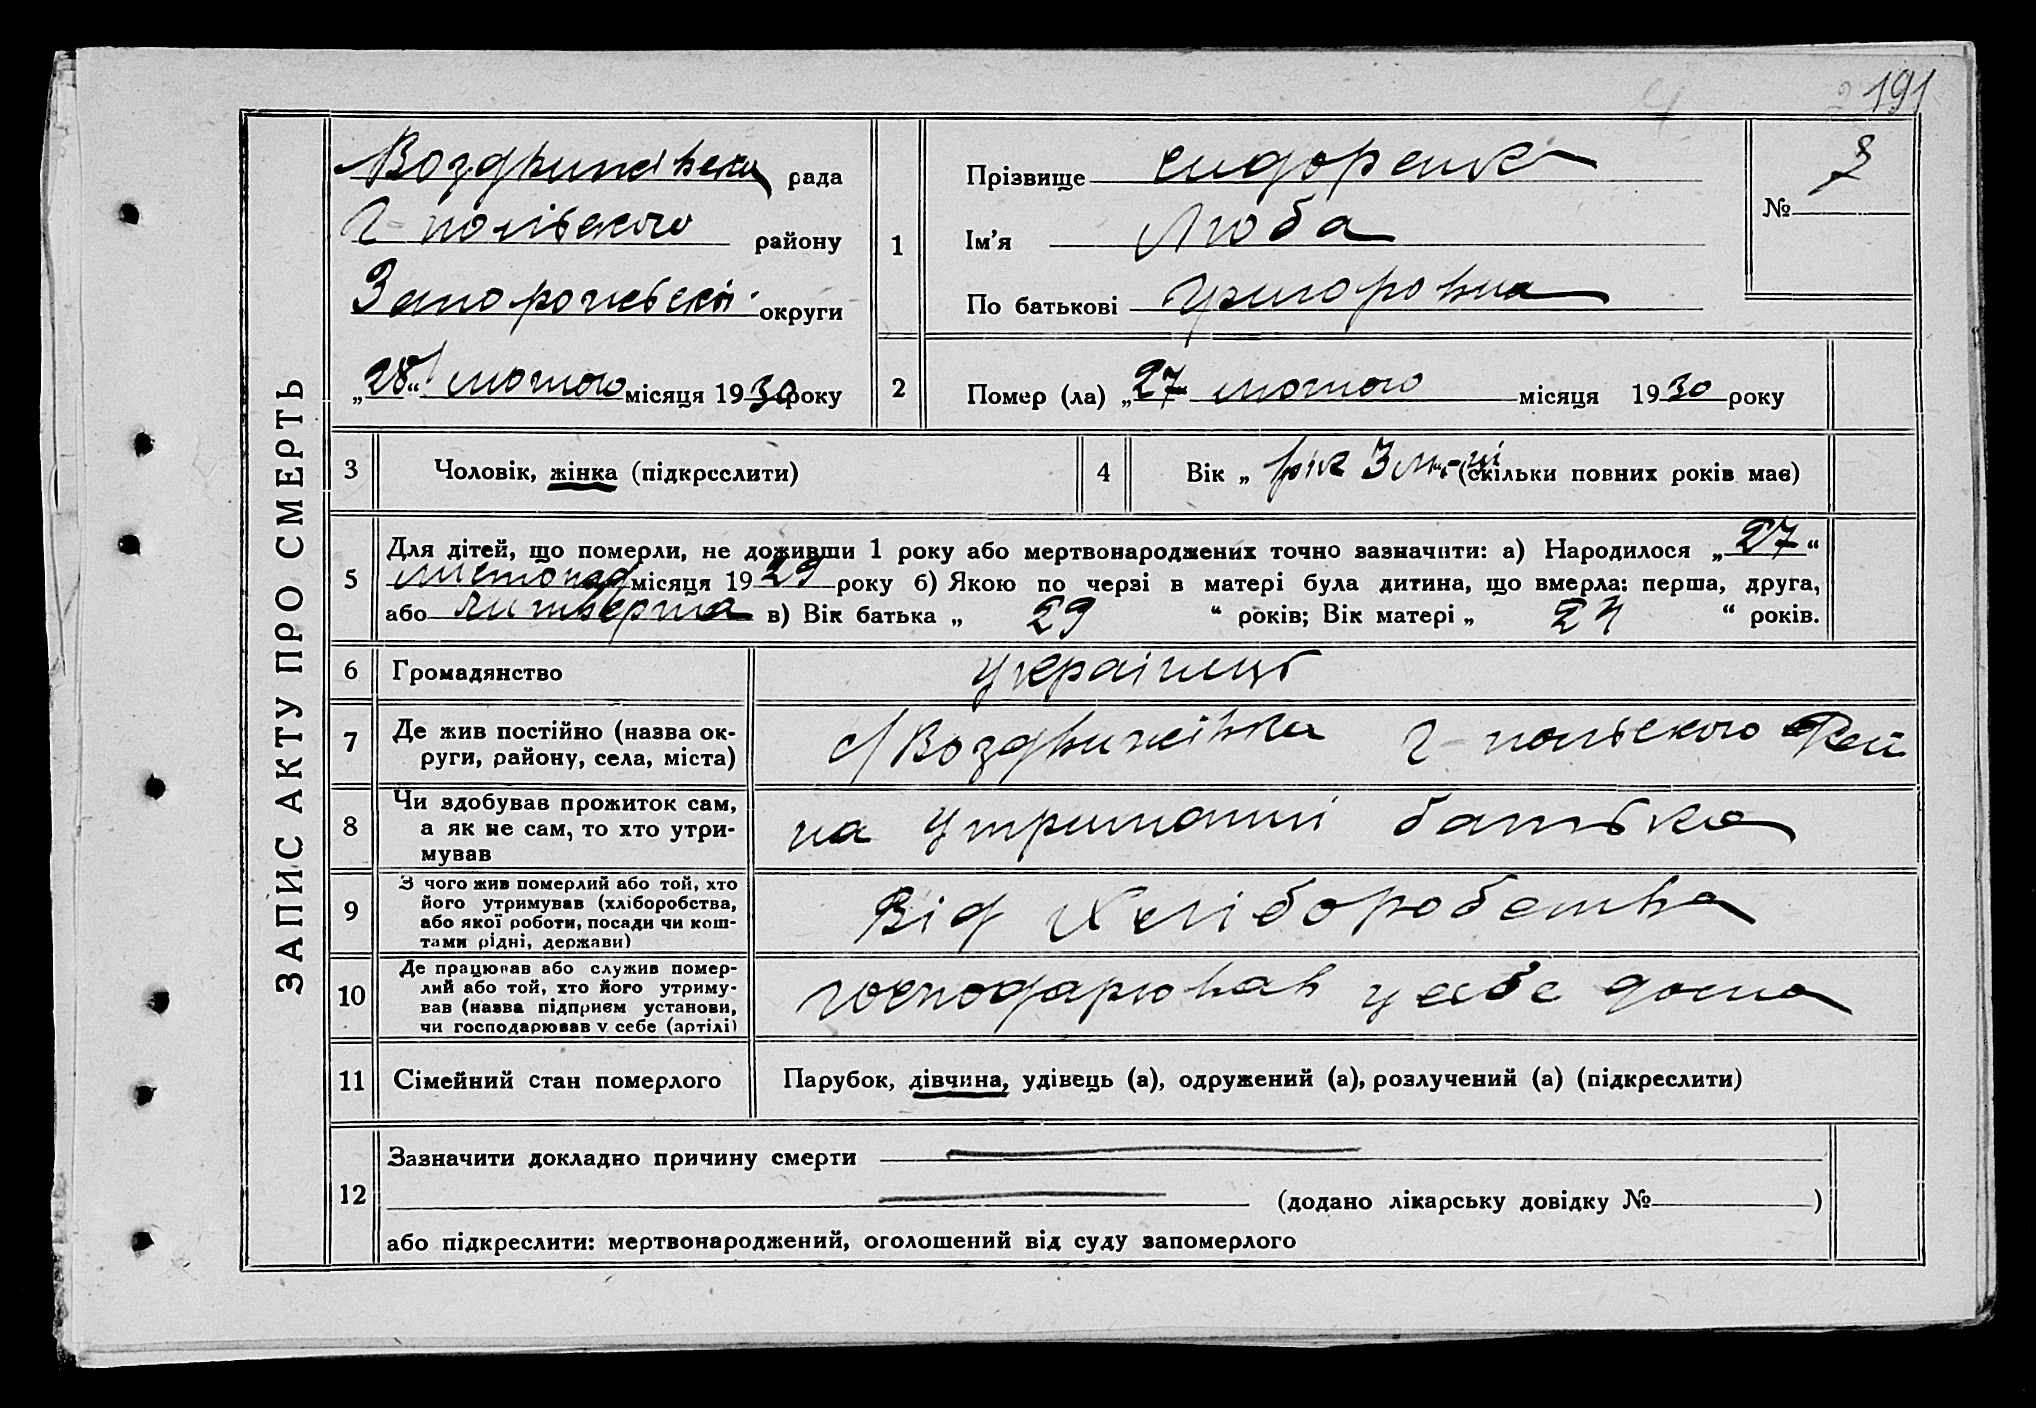 191
ЗАПИС АКТУ ПРО СМЕРТЬ
Воздвижівська рада
Г-польського району
Запорожської округи
„28“ лютого місяця 1930 року
1
Прізвище Сидоренко
Ім'я Люба
По батькові Григоровна
№
2
Помер (ла) „27 лютого місяця 1930 року
3
Чоловік, жінка (підкреслити)
4
Вік „ 3 (скільки повних років має)
5
Для дітей, що померли, не доживши 1 року або мертвонароджених точно зазначити: а) Народилося „27“
листопад місяця 1929 року б) Якою по черзі в матері була дитина, що вмерла: перша, друга,
або четверта в) Вік батька „ 29 “ років; Вік матері „ “ років.
6
Громадянство
українці
7
Де жив постійно (назва ок-
руги, району, села, міста)
с/Воздвижівка Г-польского
8
Чи здобував прожиток сам,
а як не сам, то хто утри-
мував
на утриманні батька
9
З чого жив померлий або той, хто
його утримував (хліборобства,
або якої роботи, посади чи кош-
тами рідні, держави)
Від хліборобства
10
Де працював або служив помер-
лий або той, хто його утриму-
вав (назва підприєм установи,
чи господарював у себе (артілі)
господарював у себе дома
11
Сімейний стан померлого
Парубок, дівчина, удівець (а), одружений (а), розлучений (а) (підкреслити)
12
Зазначити докладно причину смерти
(додано лікарську довідку № )
або підкреслити: мертвонароджений, оголошений від суду запомерлого